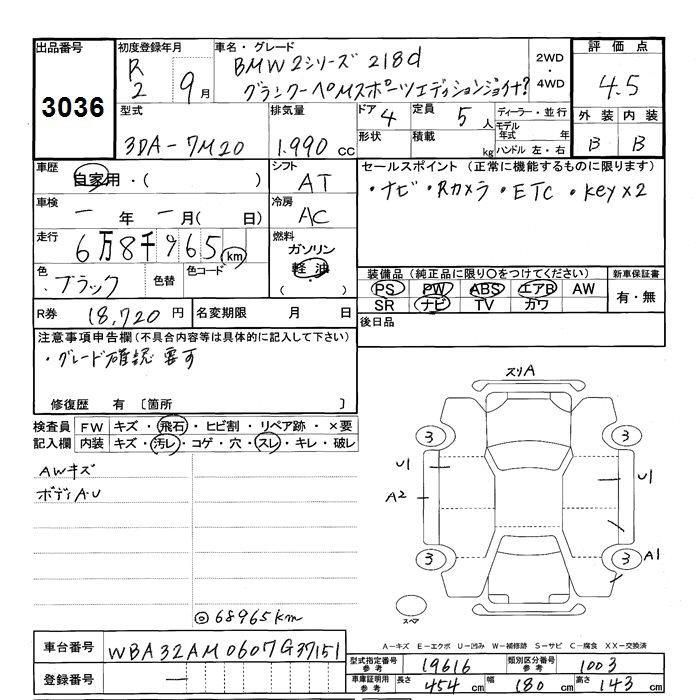 出品番号
3036
初度登録年月
R
2 9月
車名・グレード
BMW 2シリーズ 218d
グランクーペMスポーツエディションジョイ+?
2WD
・
4WD
評価点
4.5
外装 内装
B B
型式
3DA-7M20
排気量
1.990 cc
ドア 4
定員 5人
ディーラー・並行
形状
積載 kg
モデル年式 年
ハンドル 左・右
車歴
自家用・( )
シフト
AT
車検
一 年 一 月( 日)
冷房
AC
走行
6万8千965 km
燃料
ガソリン
軽油
( )
色
ブラック
色替
色コード
R券 18,720 円
名変期限 月 日
セールスポイント (正常に機能するものに限ります)
・ナビ ・Rカメラ ・ETC ・key×2
装備品(純正品に限り○をつけてください)
PS PW ABS エアB AW
SR ナビ TV カワ
新車保証書
有・無
後日品
注意事項申告欄(不具合内容等は具体的に記入して下さい)
・グレード確認要す
修復歴 有 [箇所 ]
検査員 FW キズ・飛石・ヒビ割・リペア跡・×要
記入欄 内装 キズ・汚レ・コゲ・穴・スレ・キレ・破レ
AWキズ
ボディA・U
◎68965km
スリA
3 3
U1 U1
A2
3 3 A1
スペア
A-キズ E-エクボ U-凹み W-補修跡 S-サビ C-腐食 XX-交換済
車台番号 WBA32AM0607G37151
登録番号 一
型式指定番号 参考 19616
類別区分番号 参考 1003
車庫証明用 参考 長さ 454 cm 幅 180 cm 高さ 143 cm